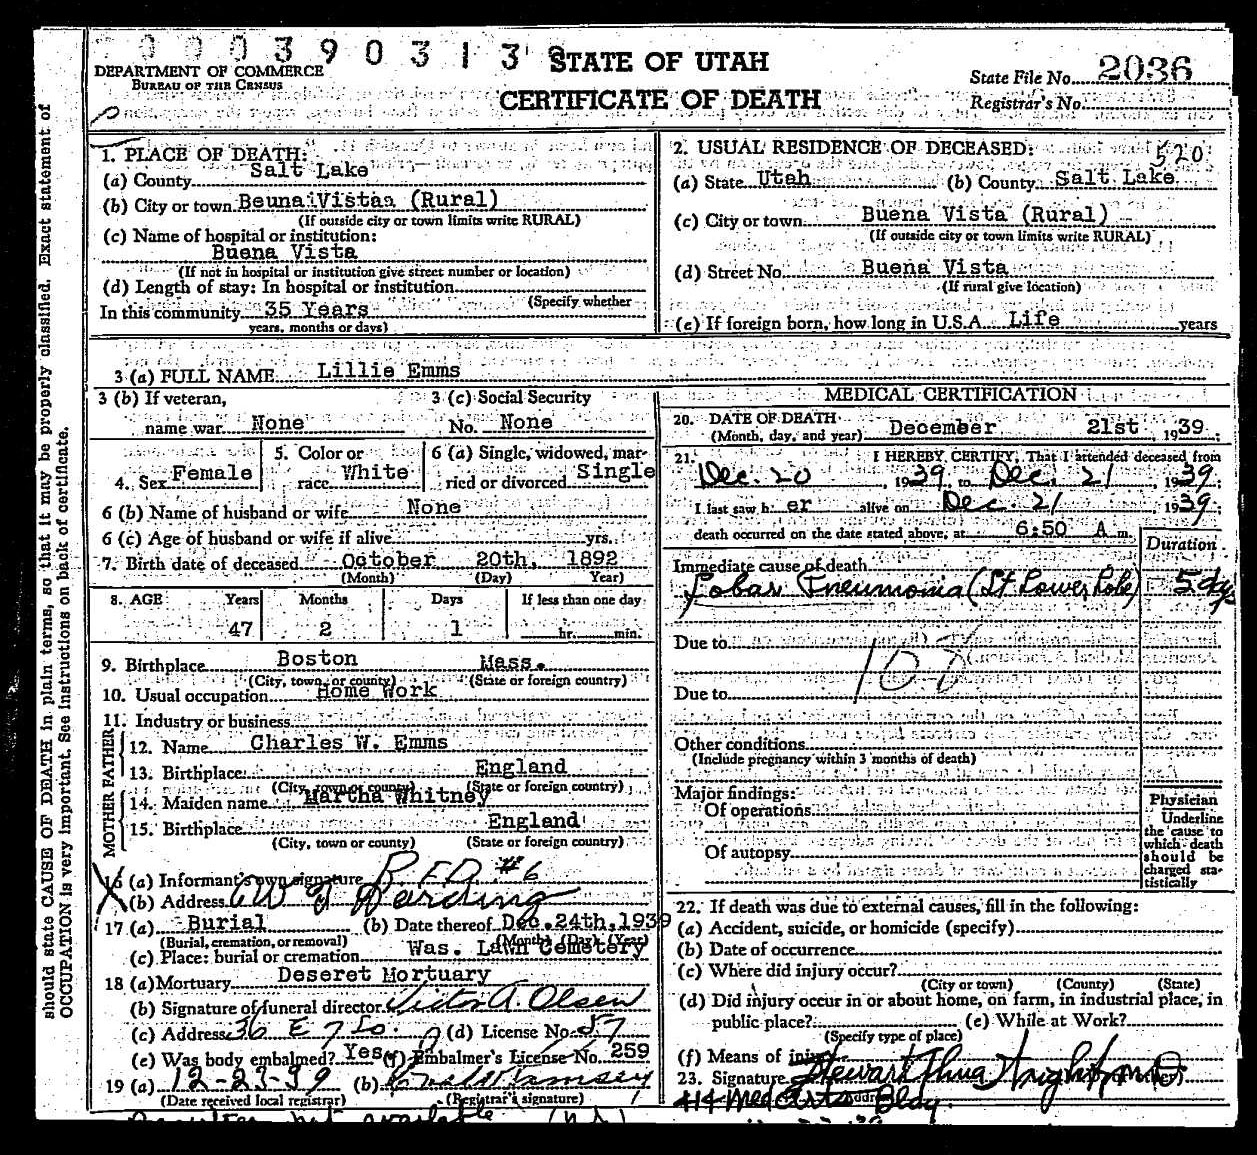 0003903139
STATE OF UTAH
DEPARTMENT OF COMMERCE
BUREAU OF THE CENSUS
CERTIFICATE OF DEATH
State File No. 2036
Registrar's No.
1. PLACE OF DEATH:
(a) County Salt Lake
(b) City or town Beuna Vistaa (Rural)
(If outside city or town limits write RURAL)
(c) Name of hospital or institution:
Buena Vista
(If not in hospital or institution give street number or location)
(d) Length of stay: In hospital or institution
(Specify whether
In this community 35 Years
years, months or days)
2. USUAL RESIDENCE OF DECEASED: 520
(a) State Utah (b) County Salt Lake
(c) City or town Buena Vista (Rural)
(If outside city or town limits write RURAL)
(d) Street No. Buena Vista
(If rural give location)
(e) If foreign born, how long in U.S.A. Life years
3 (a) FULL NAME Lillie Emms
3 (b) If veteran, name war None
3 (c) Social Security No. None
4. Sex Female
5. Color or race White
6 (a) Single, widowed, married or divorced Single
6 (b) Name of husband or wife None
6 (c) Age of husband or wife if alive yrs.
7. Birth date of deceased October 20th, 1892
(Month) (Day) Year)
8. AGE Years Months Days If less than one day
47 2 1 hr. min.
9. Birthplace Boston Mass.
(City, town, or county) (State or foreign country)
10. Usual occupation Home Work
11. Industry or business
FATHER
12. Name Charles W. Emms
13. Birthplace England
(City, town or county) (State or foreign country)
MOTHER
14. Maiden name Martha Whitney
15. Birthplace England
(City, town or county) (State or foreign country)
16 (a) Informant's own signature R.F.D. #6
(b) Address
17 (a) Burial (b) Date thereof Dec. 24th, 1939
(Burial, cremation, or removal) (Month) (Day) (Year)
(c) Place: burial or cremation Was. Lawn Cemetery
18 (a) Mortuary Deseret Mortuary
(b) Signature of funeral director Victor A. Olsen
(c) Address 36 E 7 So. (d) License No. 57
(e) Was body embalmed? Yes (f) Embalmer's License No. 259
19 (a) 12-23-39 (b)
(Date received local registrar) (Registrar's signature)
MEDICAL CERTIFICATION
20. DATE OF DEATH
(Month, day, and year) December 21st 1939;
21. I HEREBY CERTIFY, That I attended deceased from
Dec. 20, 1939, to Dec. 21, 1939;
I last saw her alive on Dec. 21 1939;
death occurred on the date stated above, at 6:50 A m.
Duration
Immediate cause of death
Lobar Pneumonia (Lt Lower Lobe) 5 dys
Due to 108
Due to
Other conditions
(Include pregnancy within 3 months of death)
Major findings:
Of operations
Of autopsy
Physician
Underline
the cause to
which death
should be
charged sta-
tistically
22. If death was due to external causes, fill in the following:
(a) Accident, suicide, or homicide (specify)
(b) Date of occurrence
(c) Where did injury occur?
(City or town) (County) (State)
(d) Did injury occur in or about home, on farm, in industrial place, in
public place? (e) While at Work?
(Specify type of place)
(f) Means of injury
23. Signature Stewart Wright M.D.
414 Med Arts Bldg.
should state CAUSE OF DEATH in plain terms, so that it may be properly classified. Exact statement of
OCCUPATION is very important. See instructions on back of certificate.